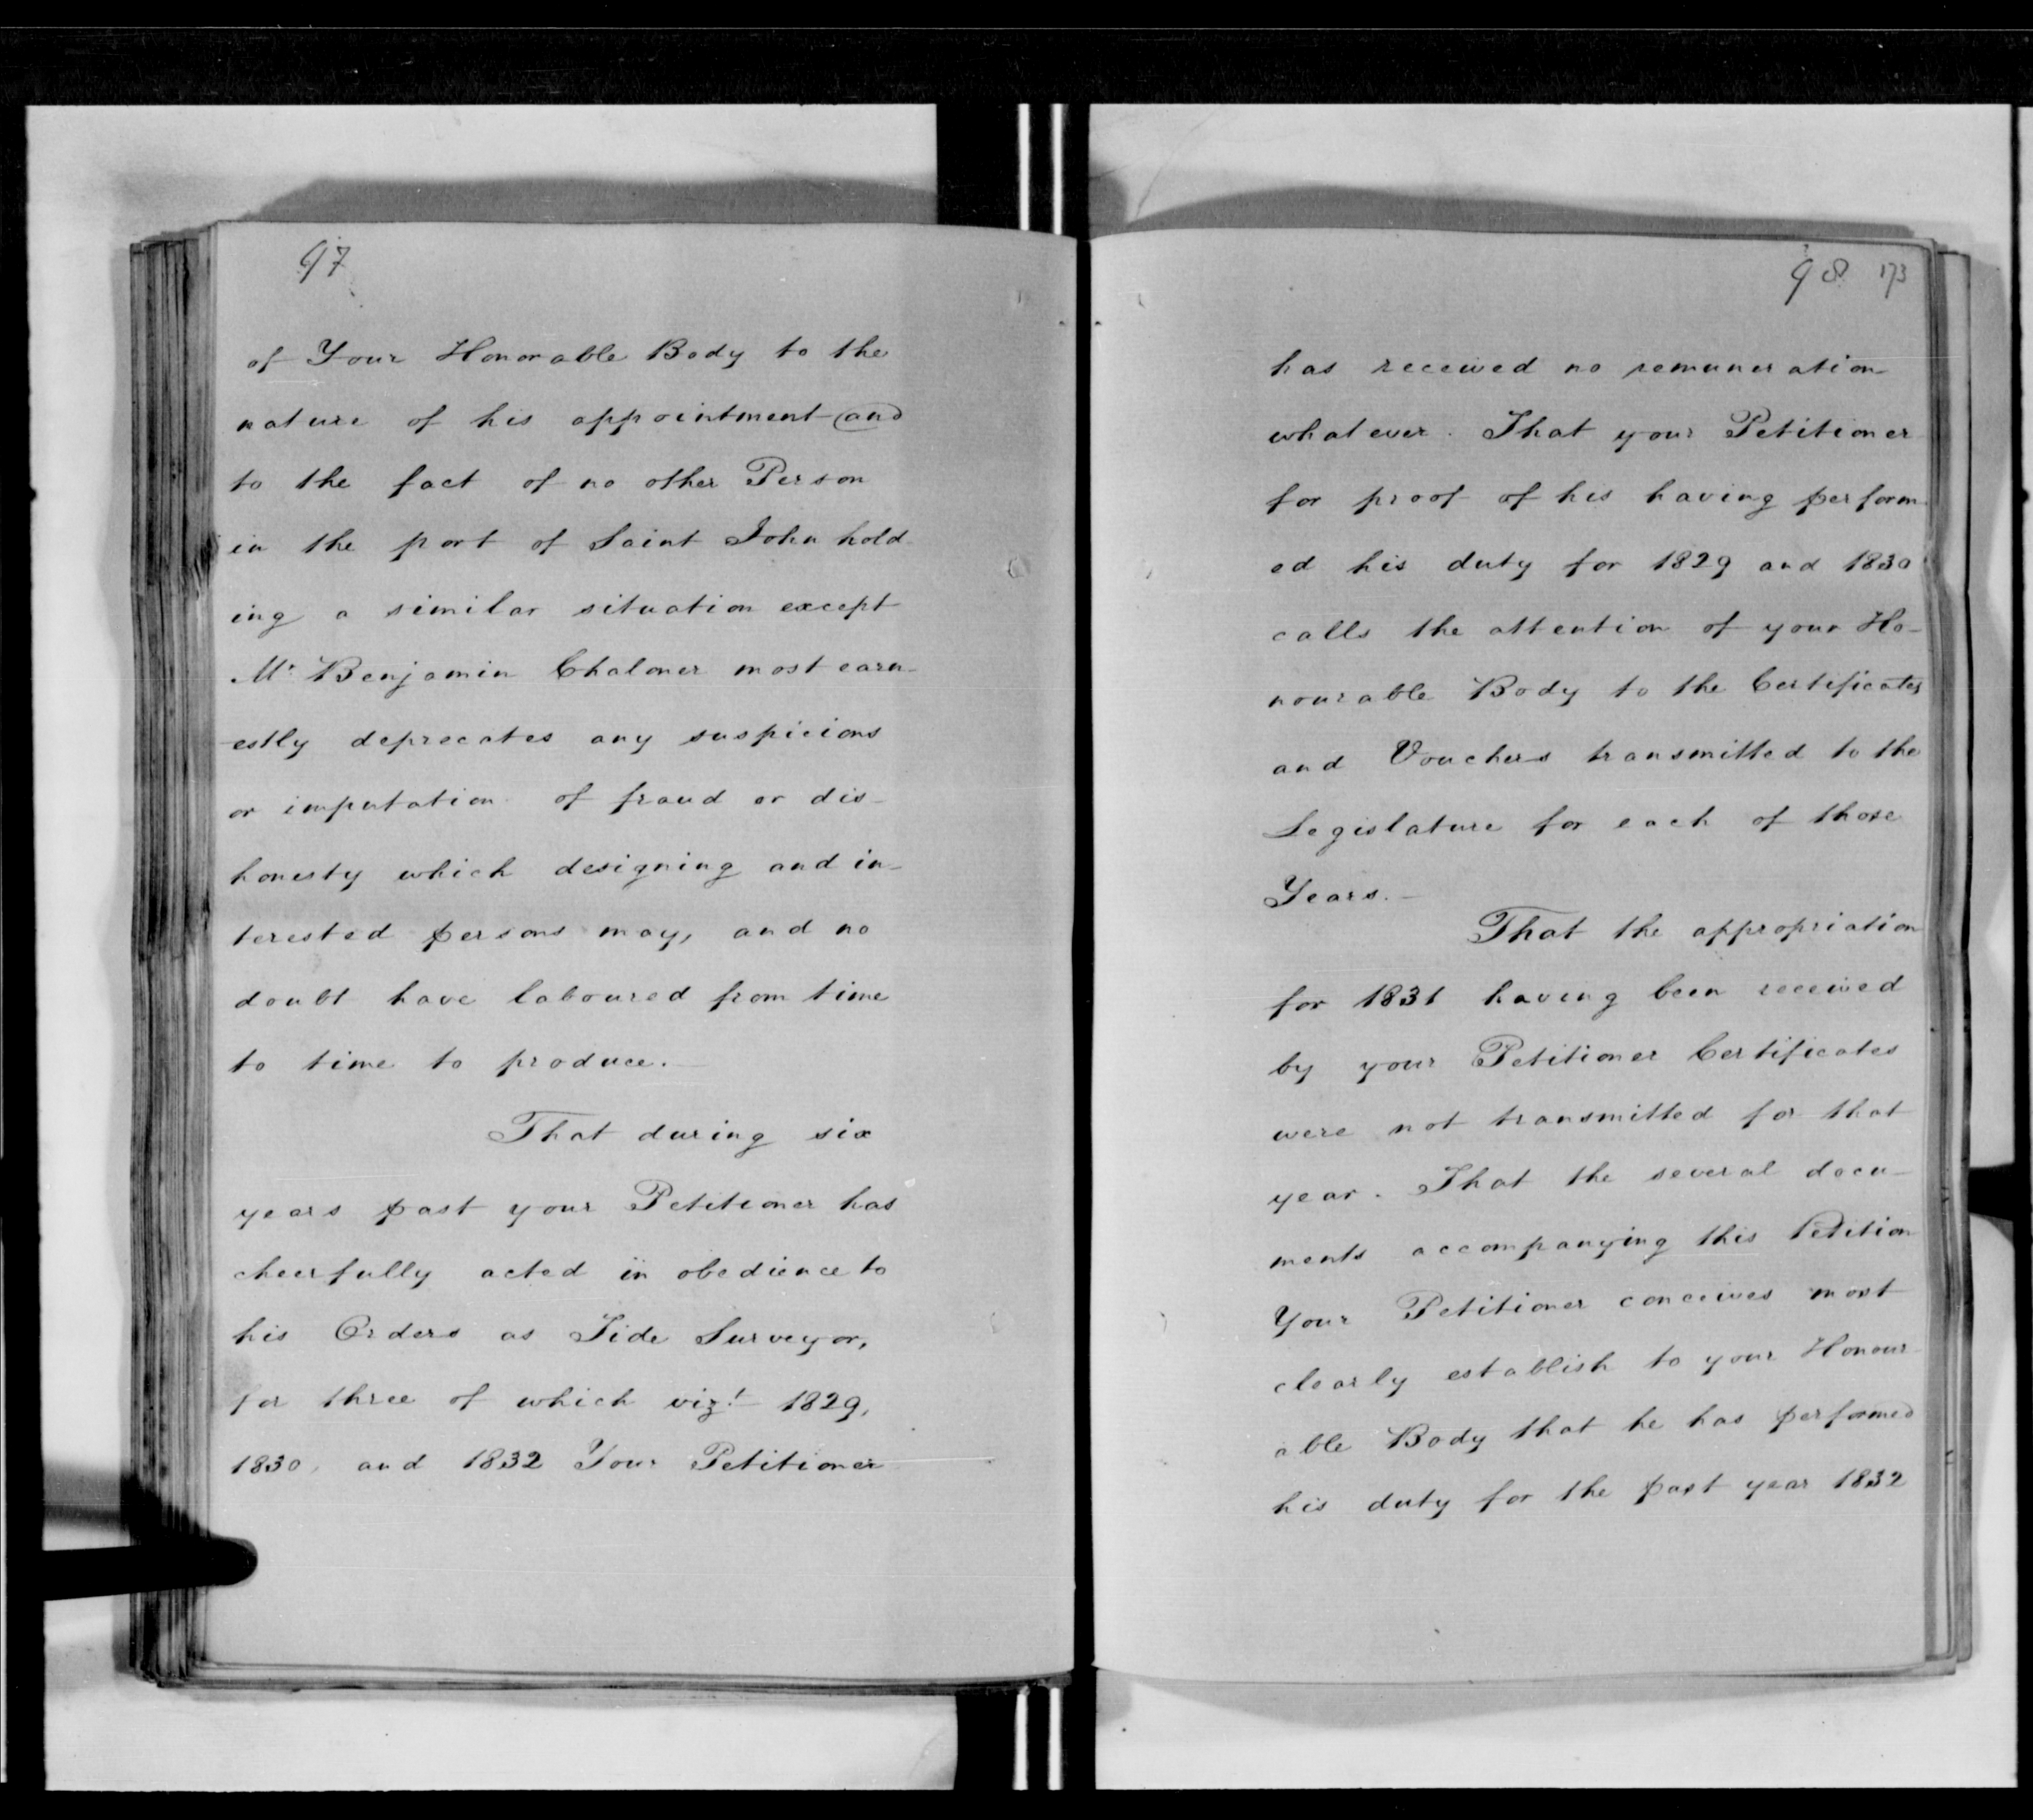 97
of Your Honorable Body to the
nature of his appointment and
to the fact of no other Person
in the port of Saint John hold
ing a similar situation except
Mr Benjamin Chaloner most earn-
estly deprecates any suspicions
or imputation of fraud or dis-
honesty which designing and in-
terested persons may, and no
doubt have laboured from time
to time to produce.—
That during six
years past your Petitioner has
cheerfully acted in obedience to
his Orders as Tide Surveyor,
for three of which vizt 1829,
1830, and 1832 Your Petitioner
98 173
has received no remuneration
whatever. That your Petitioner
for proof of his having perform-
ed his duty for 1829 and 1830
calls the attention of your Ho-
nourable Body to the Certificates
and Vouchers transmitted to the
Legislature for each of those
Years.—
That the appropriation
for 1831 having been received
by your Petitioner Certificates
were not transmitted for that
year. That the several docu-
ments accompanying this Petition
Your Petitioner conceives most
clearly establish to your Honour-
able Body that he has performed
his duty for the past year 1832